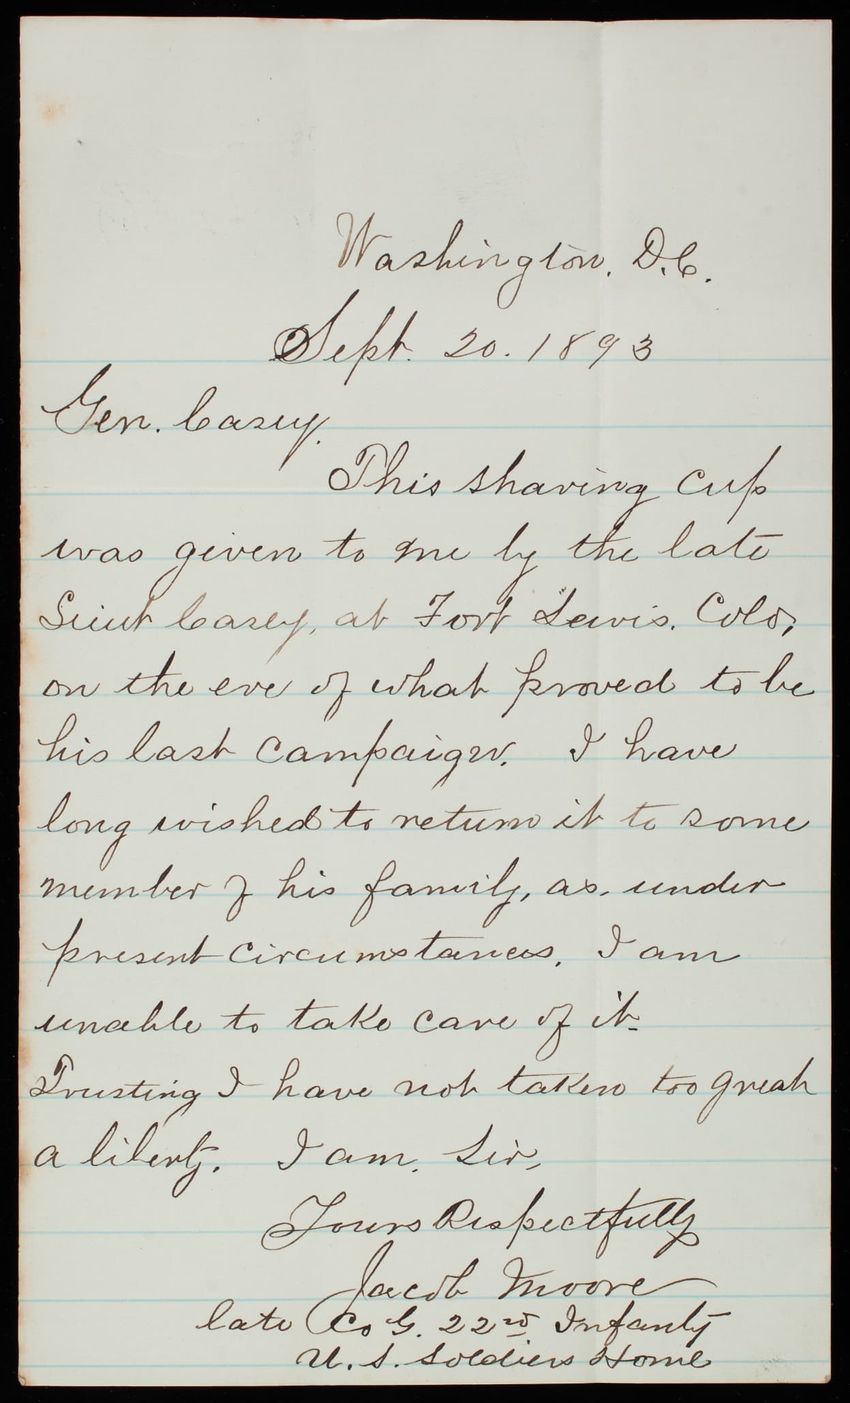 Washington. D.C.
Sept. 20. 1893
Gen. Casey.
This shaving cup
was given to me by the late
Lieut Casey, at Fort Lewis. Colo,
on the eve of what proved to be
his last campaign. I have
long wished to return it to some
member of his family, as. under
present circumstances. I am
unable to take care of it.
Trusting I have not taken too great
a liberty. I am. Sir,
Yours Respectfully
Jacob Moore
late Co G. 22nd Infanty
U. S. Soldiers Home